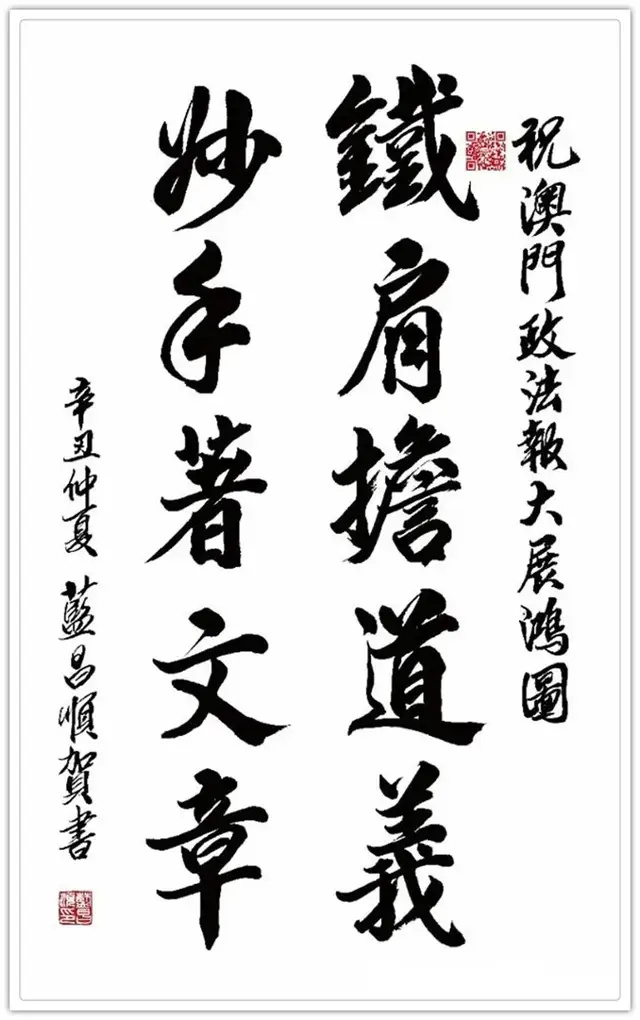 祝澳門政法報大展鴻圖
鐵肩擔道義
妙手著文章
辛丑仲夏 藍昌順賀書